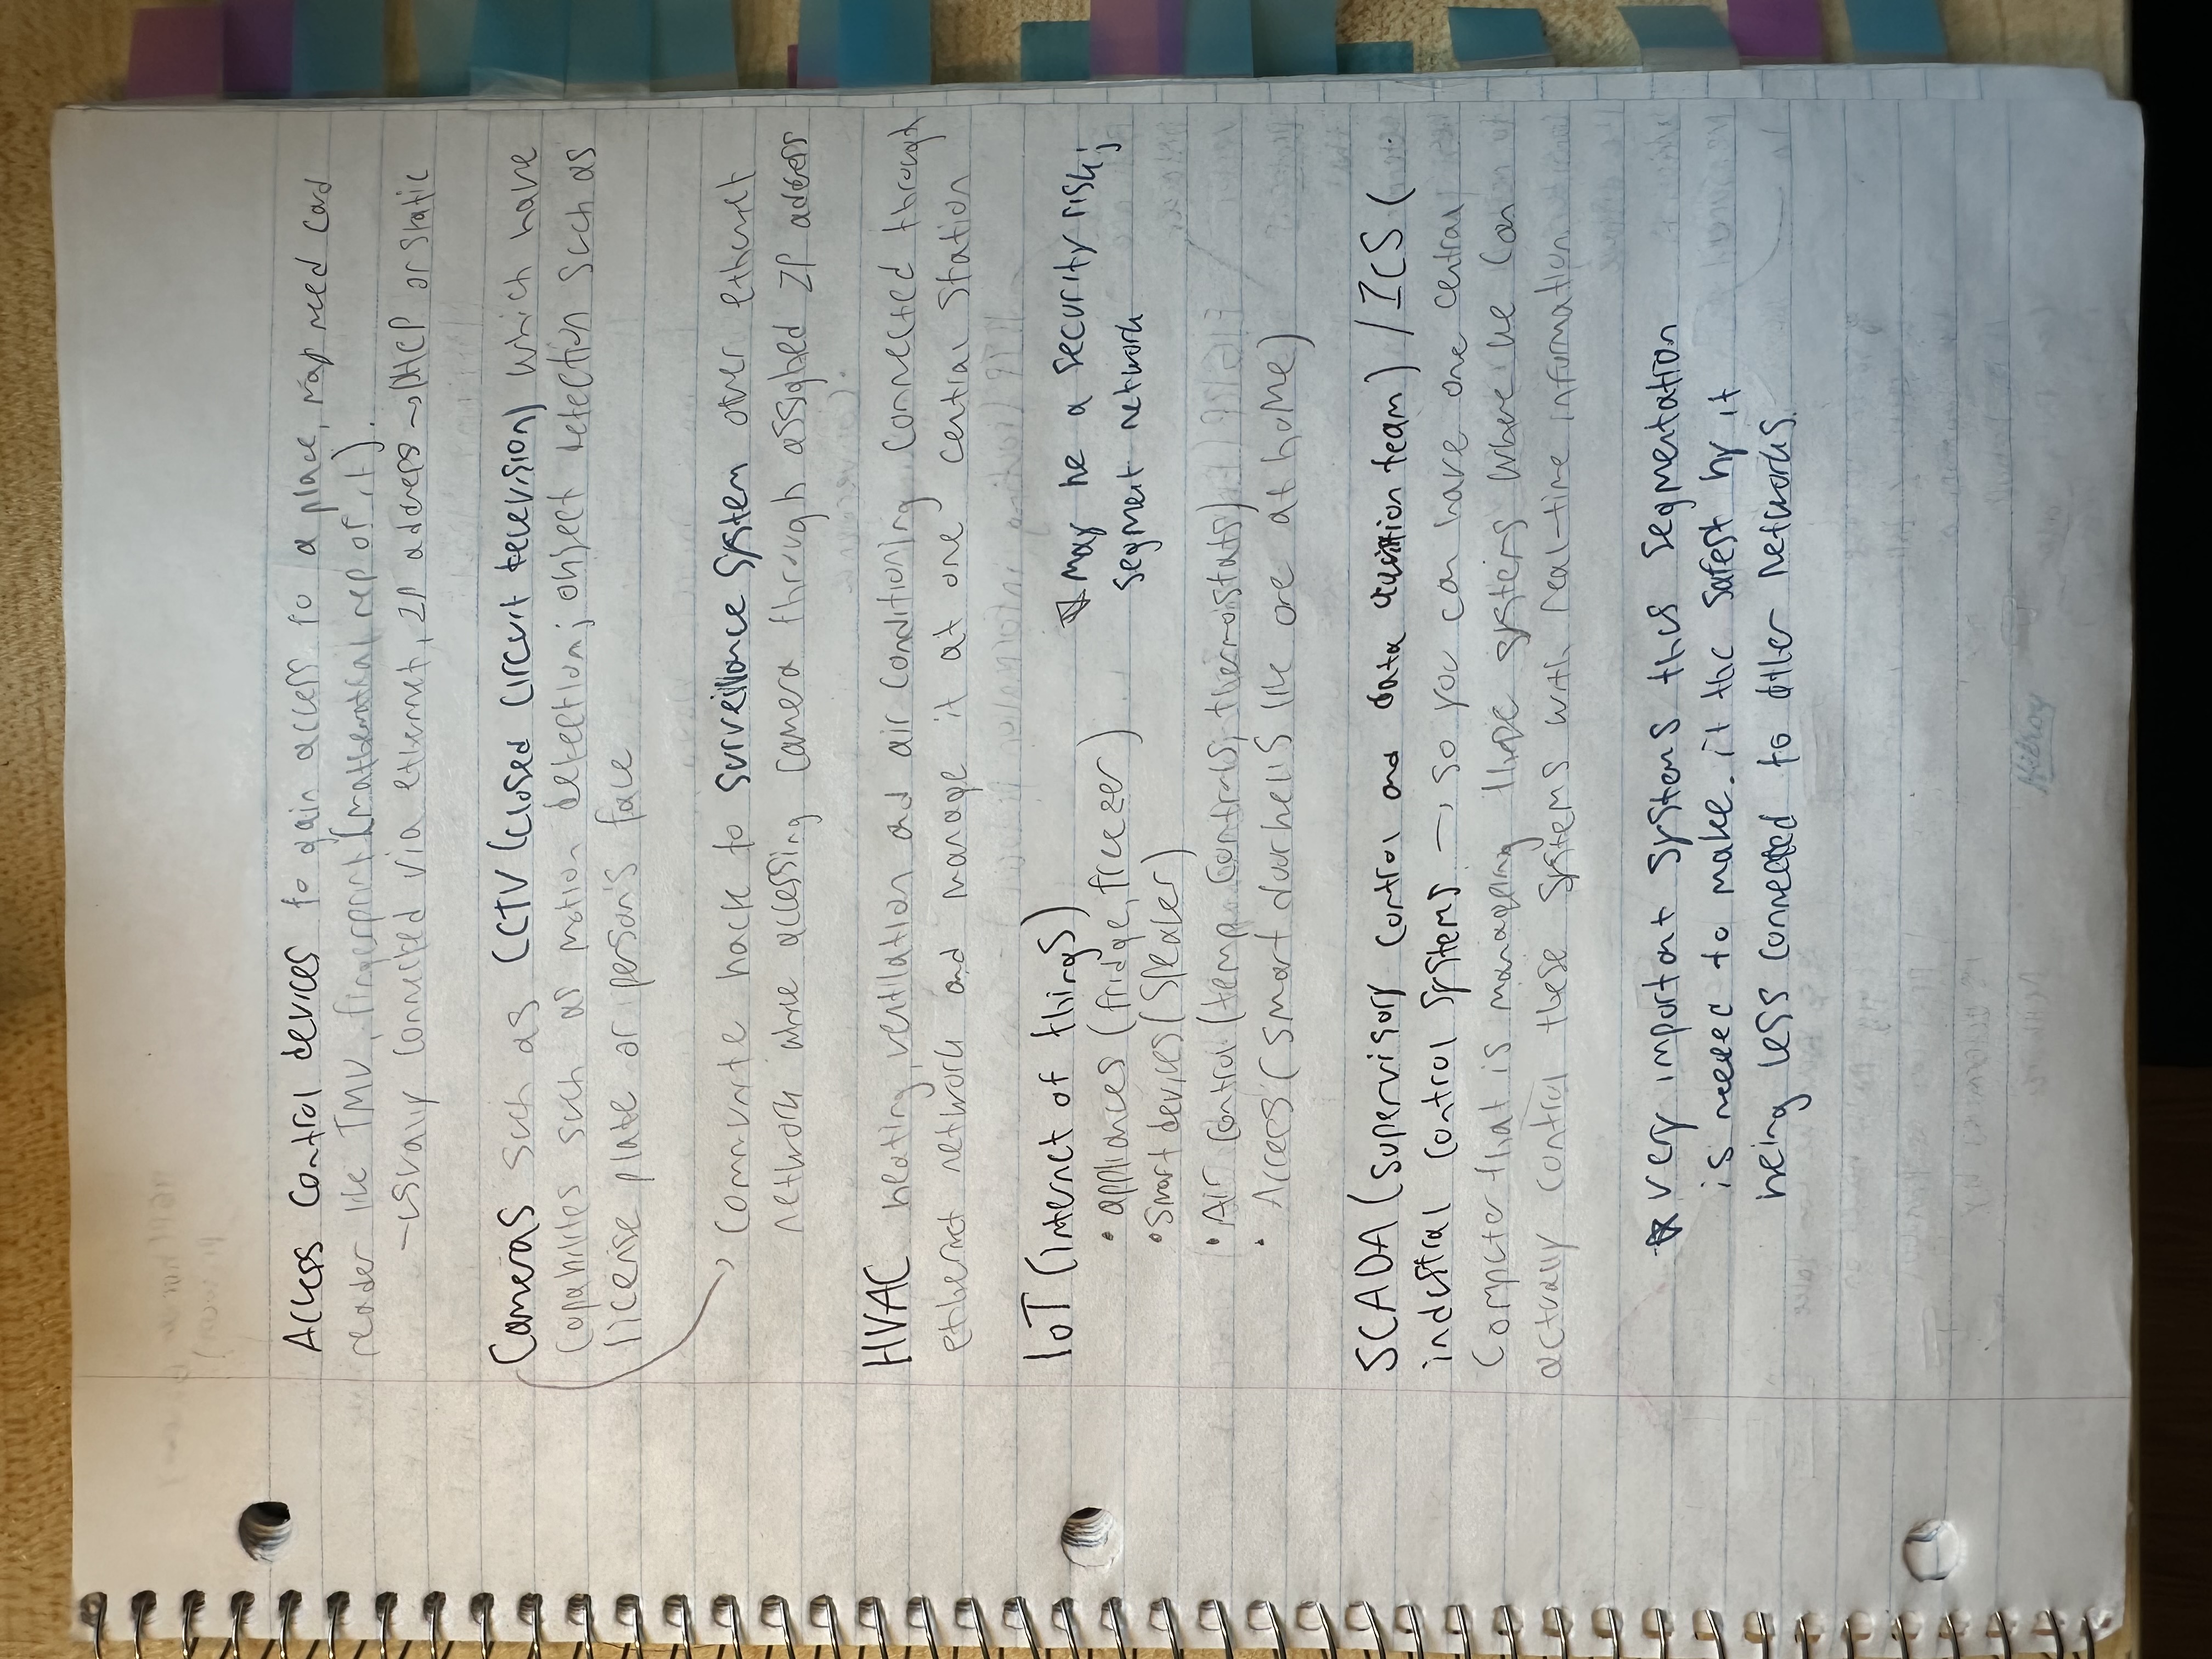 Access control devices to gain access to a place, may need card
reader like TMU, fingerprint (mathematical rep of it).
- usually connected via ethernet, IP address → DHCP or static
Cameras such as CCTV (closed circuit television) which have
capabilites such as motion detection; object detection such as
license plate or person's face
back to surveillance system over ethernet
network while accessing camera through assigned IP address
HVAC heating, ventilation and air conditioning connected through
ethernet network and manage it at one central station
IoT (internet of things)
☆ may be a security risk;
segment network
• appliances (fridge, freezer)
• Smart devices (speaker)
• Air control (temp controls, thermoistats)
• Access (smart doorbells like one at home)
SCADA (supervisory control and data team) / ICS (
industrial control systems → so you can have one central
computer that is managing these systems where we can
actually control these systems with real-time information
☆ very important systems thus segmentation
is needed to make it the safest by it
being less connected to other networks.
Hilroy